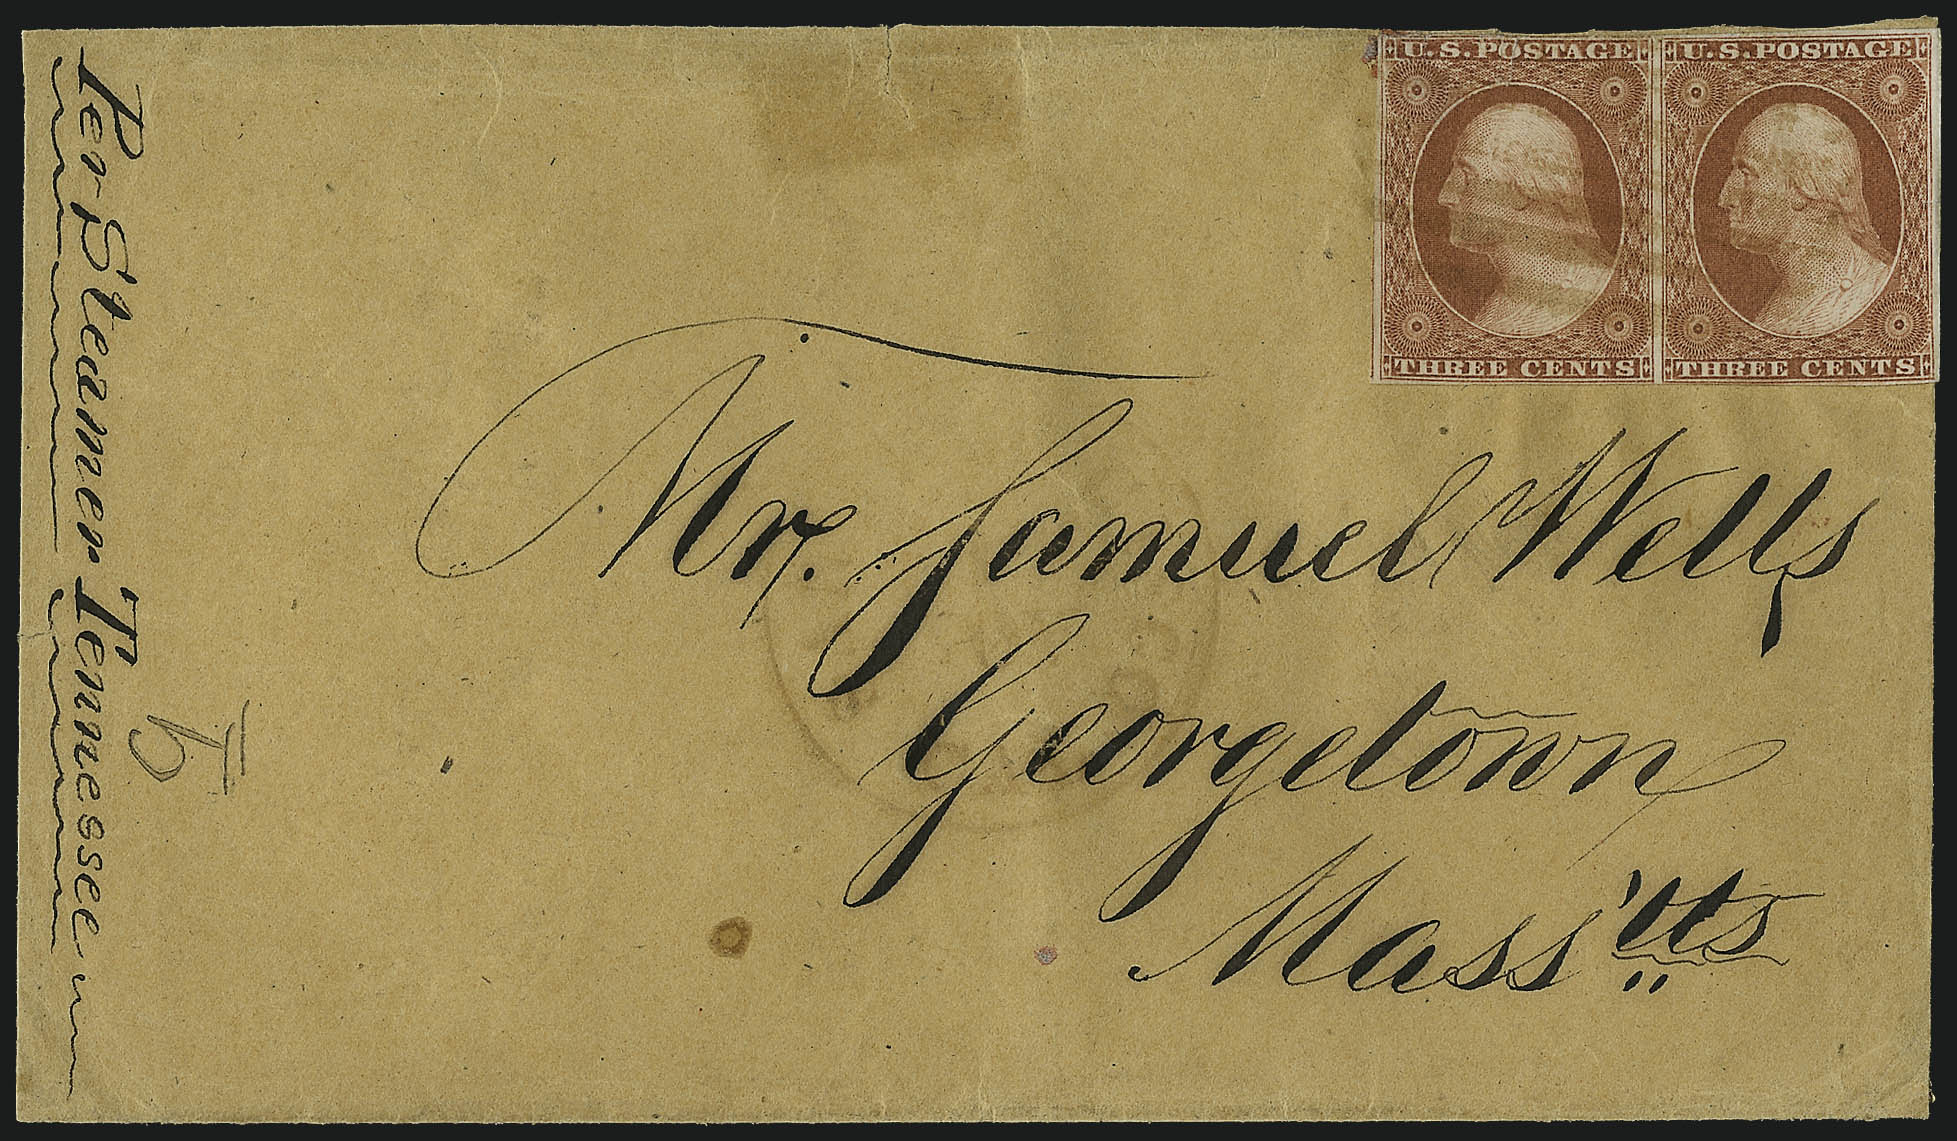 U.S. POSTAGE U.S. POSTAGE
THREE CENTS THREE CENTS
Per Steamer Tennessee
Mr. Samuel Wells,
Georgetown
Mass'tts